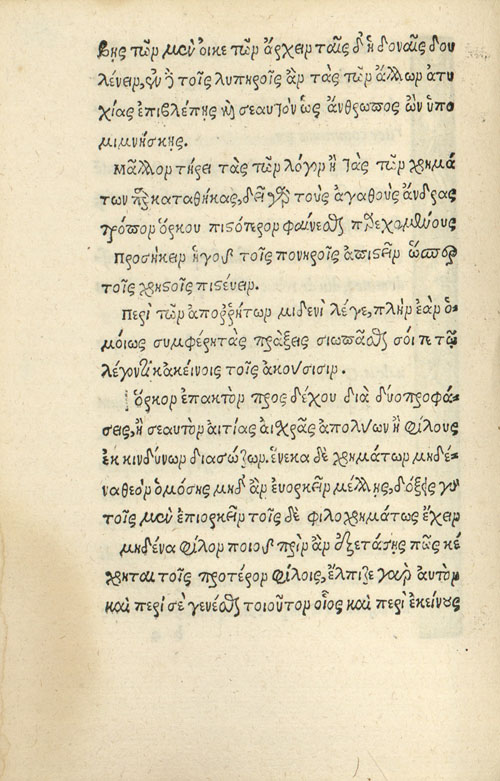 βῃς τῶν μὲν οἰκετῶν ἄρχειν ταῖς δ' ἡδοναῖς δου
λέυειν, ὀργῇ τοῖς λυπηροῖς ἂν τὰς τῶν ἄλλων ἀτυ
χίας ἐπιβλέπῃς καὶ σεαυτὸν ὡς ἄνθρωπος ὢν ὑπο
μιμνήσκῃς.
Μᾶλλον τήρει τὰς τῶν λόγων ἢ τὰς τῶν χρημά
των παρακαταθήκας, δεῖ γὰρ τοὺς ἀγαθοὺς ἄνδρας
τρόπον ὅρκου πιστότερον φαίνεσθαι παρεχομένους
Προσήκειν ἡγοῦ τοῖς πονηροῖς ἀπιστεῖν ὥσπερ
τοῖς χρηστοῖς πιστέυειν.
Περὶ τῶν ἀποῤῥήτων μιδενὶ λέγε, πλὴν ἐὰν ὁ-
μοίως συμφέρῃ τὰς πράξεις σιωπᾶσθαι σόι τε τῷ
λέγοντι κακείνοις τοῖς ἀκούσισιν.
Ὅρκον ἐπακτὸν προςδέχου διὰ δύο προφά-
σεις, ἢ σεαυτὸν αἰτίας αἰχρᾶς ἀπολύων ἢ φίλους
ἐκ κινδύνων διασώζων. ἕνεκα δὲ χρημάτων μηδέ-
να θεὸν ὀμόσῃς μηδ' ἂν ἐυορκεῖν μέλλῃς, δόξεις γὰρ
τοῖς μὲν ἐπιορκεῖν τοῖς δὲ φιλοχρημάτως ἔχειν
μηδένα φίλον ποιοῦ πρὶν ἂν ἐξετάσῃς πῶς κέ
χρηται τοῖς προτέρον φίλοις, ἔλπιζε γαρ αὐτὸν
καὶ περὶ σὲ γενέσθαι τοιοῦτον οἷος καὶ περὶ ἐκείνους